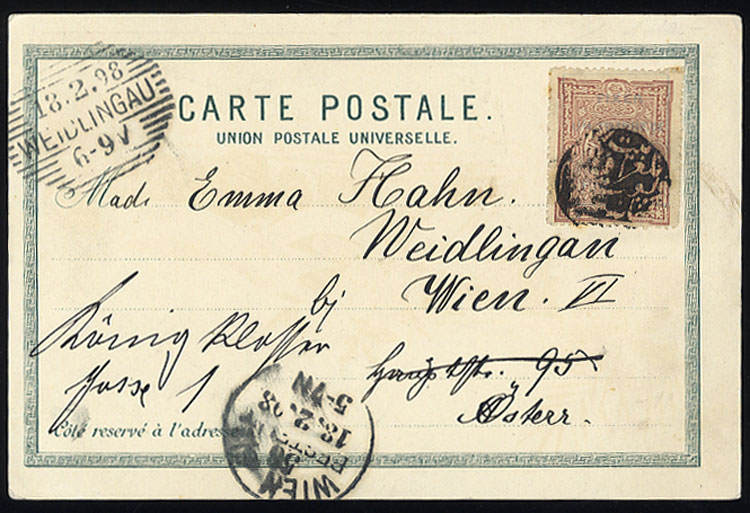 18.2.98
WEIDLINGAU
6-9V
CARTE POSTALE.
UNION POSTALE UNIVERSELLE.
Made Emma Hahn.
Weidlingau
bj Wien. VI
König Klosser
gasse 1
Hauptstr. 95
Österr.
Côté reservé à l'adresse
WIEN
18.2.98
5-VN